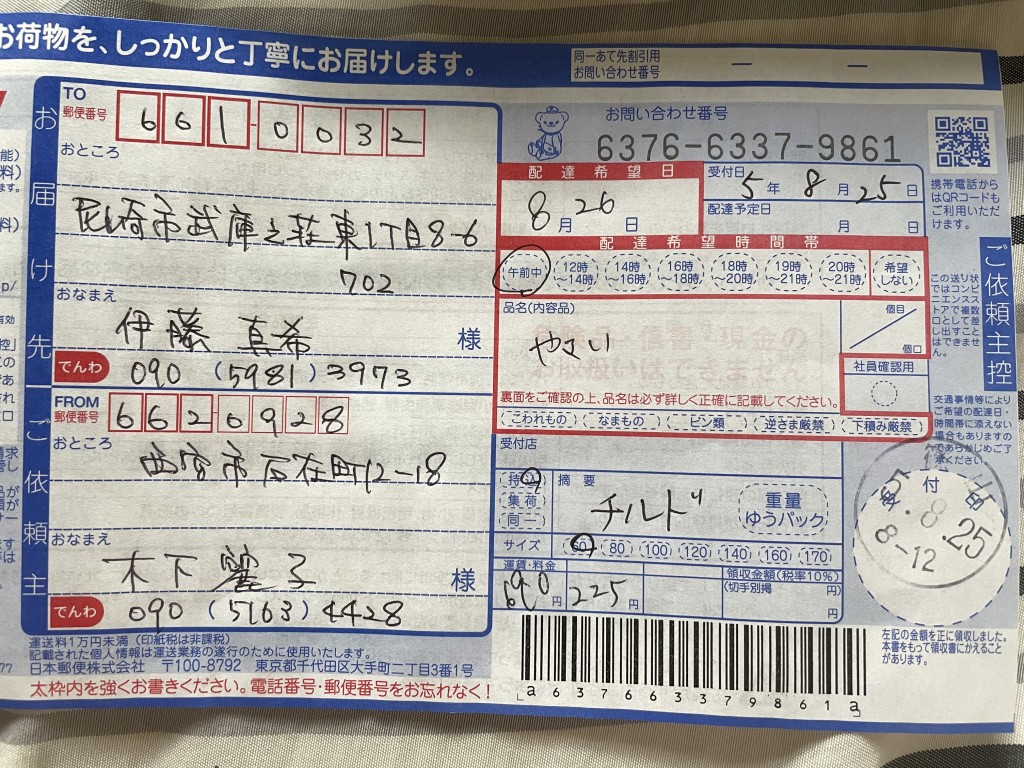 お荷物を、しっかりと丁寧にお届けします。
同一あて先割引用
お問い合わせ番号
お届け先
TO
郵便番号
661-0032
おところ
尼崎市武庫之荘東1丁目8-6
702
おなまえ
伊藤 真希 様
でんわ 090 (5981) 3973
ご依頼主
FROM
郵便番号
662-0928
おところ
西宮市石在町12-18
おなまえ
木下 子 様
でんわ 090 (5163) 4428
運送料1万円未満 (印紙税は非課税)
記載された個人情報は運送業務の遂行のために使用いたします。
日本郵便株式会社 〒100-8792 東京都千代田区大手町二丁目3番1号
太枠内を強くお書きください。電話番号・郵便番号をお忘れなく!
お問い合わせ番号
6376-6337-9861
配達希望日
8月 26日
受付日
5年 8月 25日
配達予定日
月 日
配達希望時間帯
午前中
12時~14時
14時~16時
16時~18時
18時~20時
19時~21時
20時~21時
希望しない
品名(内容品)
やさい
個目
個口
社員確認用
裏面をご確認の上、品名は必ず詳しく正確に記載してください。
こわれもの
なまもの
ビン類
逆さま厳禁
下積み厳禁
受付店
持込
集荷
同一
摘要
チルド
重量
ゆうパック
サイズ 60 80 100 120 140 160 170
運賃・料金
690円
225円
円
領収金額(税率10%)
(切手別掲 円)
円
a637663379861a
携帯電話から
はQRコードも
ご利用いただ
けます。
ご依頼主控
この送り状
ではコンビ
ニエンスス
トアで複数
口として差
し出すこと
はできませ
ん。
交通事情等により
ご希望の配達日・
時間帯に添えない
場合もありますの
であらかじめご了
承ください。
受付
8.25
8-12
左記の金額を正に領収しました。
本書をもって領収書にかえること
があります。